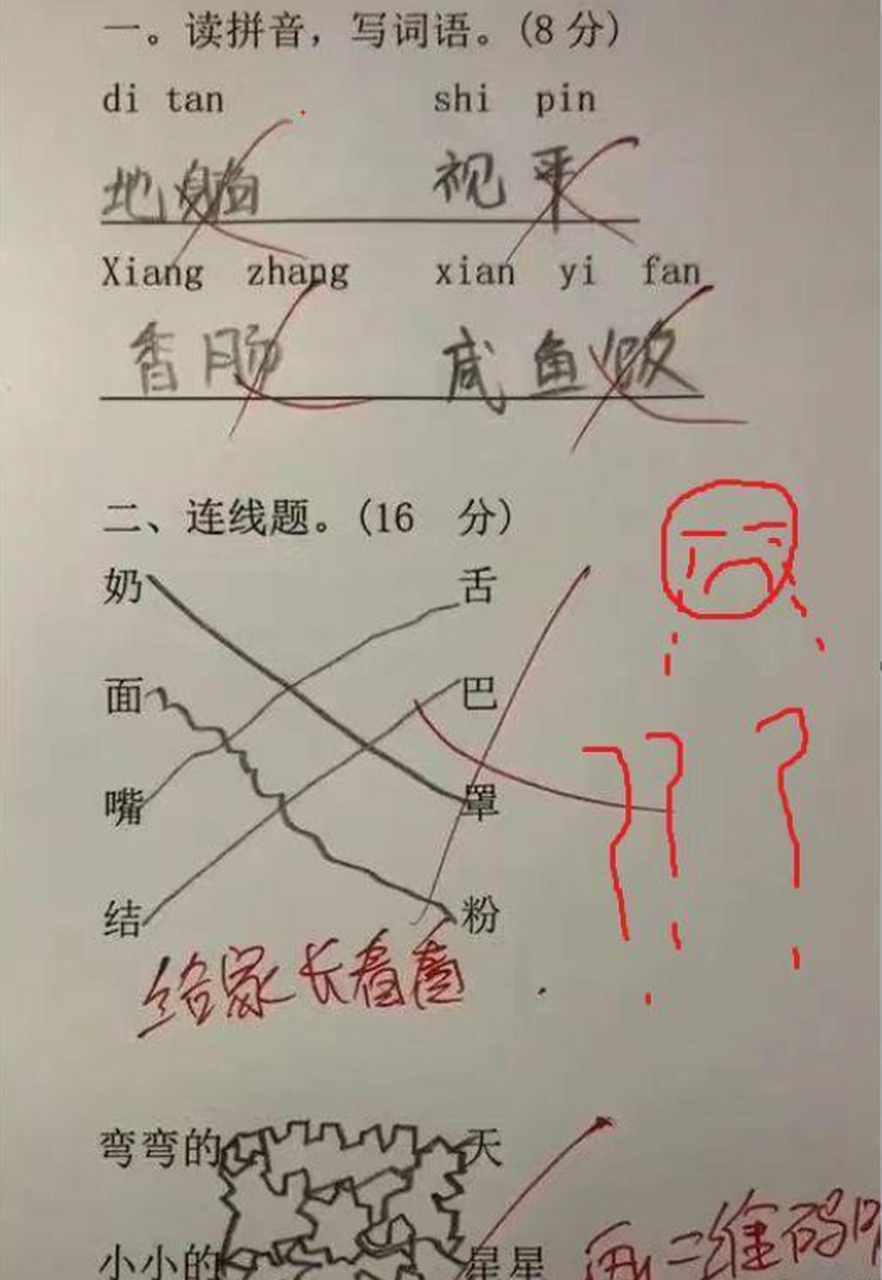 一。读拼音，写词语。(8 分)
di tan shi pin
地 视
Xiang zhang xian yi fan
香肠 咸鱼饭
二、连线题。(16 分)
奶 舌
面 巴
嘴 罩
结 粉
给家长看看
弯弯的 天
小小的 星星
画二维码